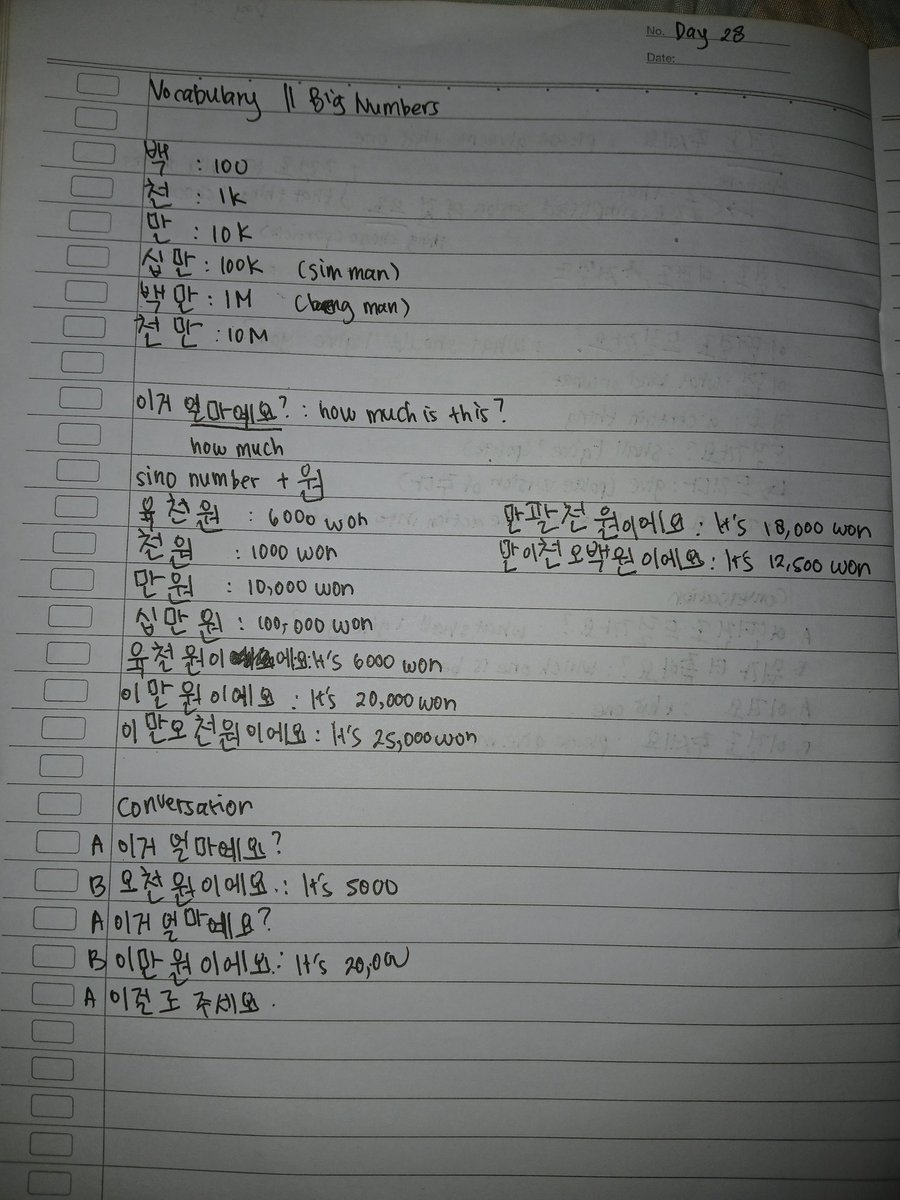 No. Day 28
Date:
Vocabulary || Big Numbers
백 : 100
천 : 1K
만 : 10K
십만 : 100K (sim man)
백만 : 1M (baeng man)
천만 : 10M
이거 얼마예요? : how much is this?
how much
sino number + 원
육천원 : 6000 won
만팔천 원이에요 : It's 18,000 won
천원 : 1000 won
만이천오백원이에요 : It's 12,500 won
만원 : 10,000 won
십만원 : 100,000 won
육천원이에요 : It's 6000 won
이만원이에요 : It's 20,000 won
이만오천원이에요 : It's 25,000 won
Conversation
A 이거 얼마예요?
B 오천원이에요. : It's 5000
A 이거 얼마예요?
B 이만원이에요. : It's 20,000
A 이걸로 주세요.